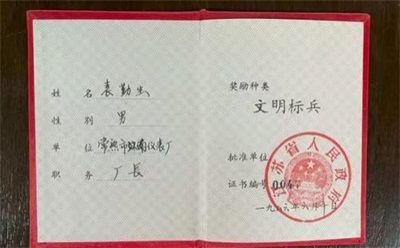 姓名 袁勤虫
性别 男
单位 常熟市仪表厂
职务 厂长
奖励种类
文明标兵
批准单位
江苏省人民政府
证书编号 004
一九八六年六月 日